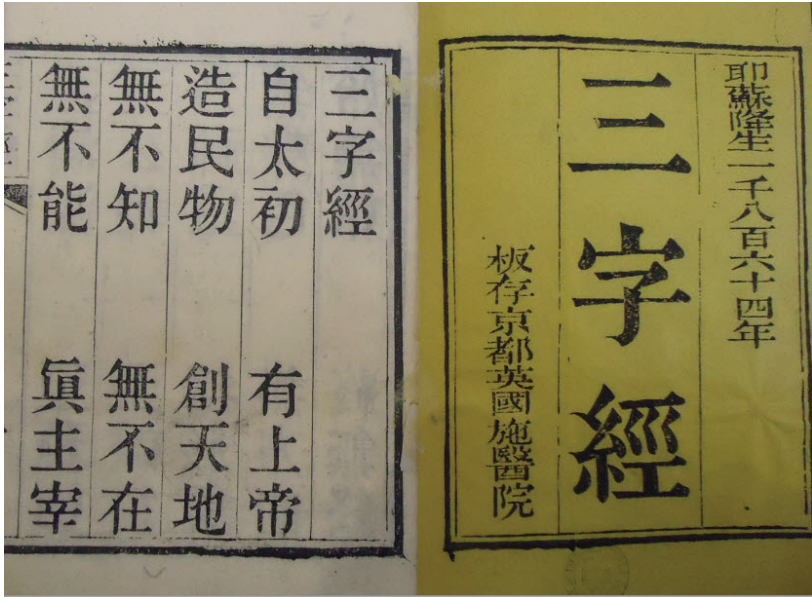 耶蘇降生一千八百六十四年
三字經
板存京都英國施醫院
三字經
自太初 有上帝
造民物 創天地
無不知 無不在
無不能 眞主宰